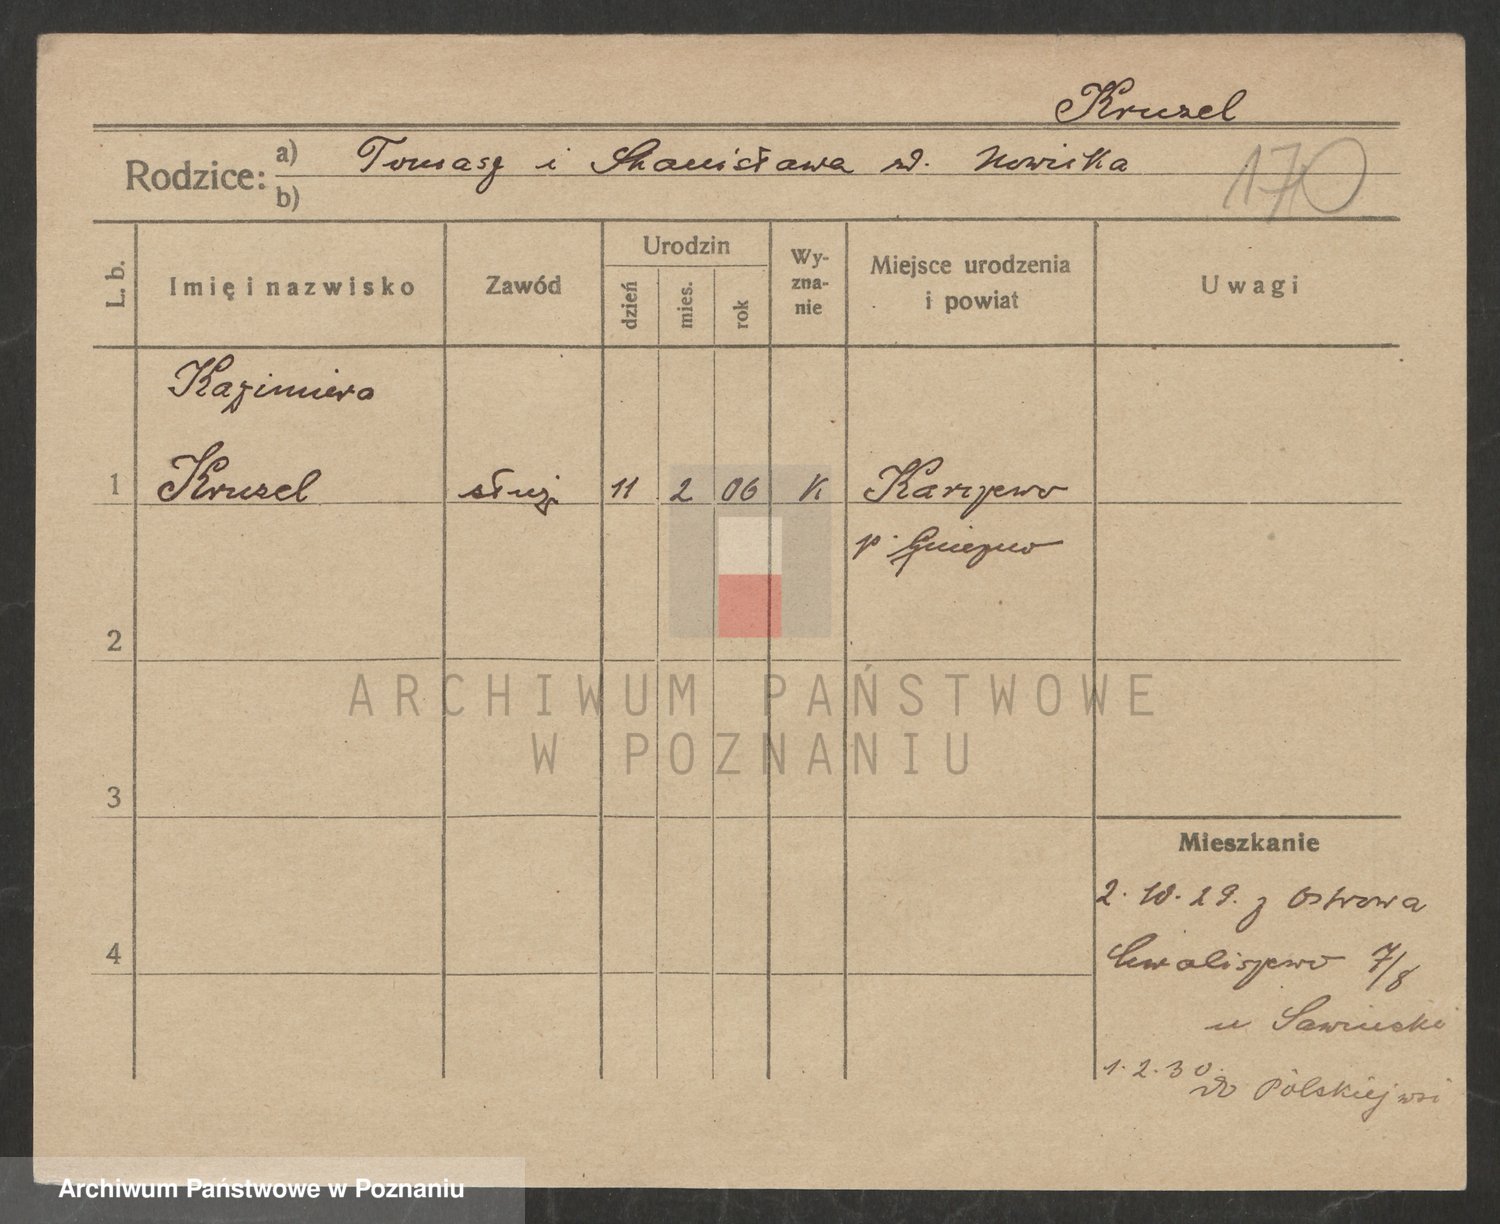 Kruzel
Rodzice: a) Tomasz i Stanisława z d. Nowicka
b)
170
L. b.
Imię i nazwisko
Zawód
Urodzin
dzień
mies.
rok
Wy-
zna-
nie
Miejsce urodzenia
i powiat
Uwagi
Kazimiera
1 Kruzel służ. 11 2 06 K Karczewo
p. Gniezno
2
3
4
ARCHIWUM PAŃSTWOWE
W POZNANIU
Mieszkanie
2.10.29. z Ostrowa
Chwaliszewo 7/8
u Sawinski
1.2.30.
do Polskiejwsi
Archiwum Państwowe w Poznaniu